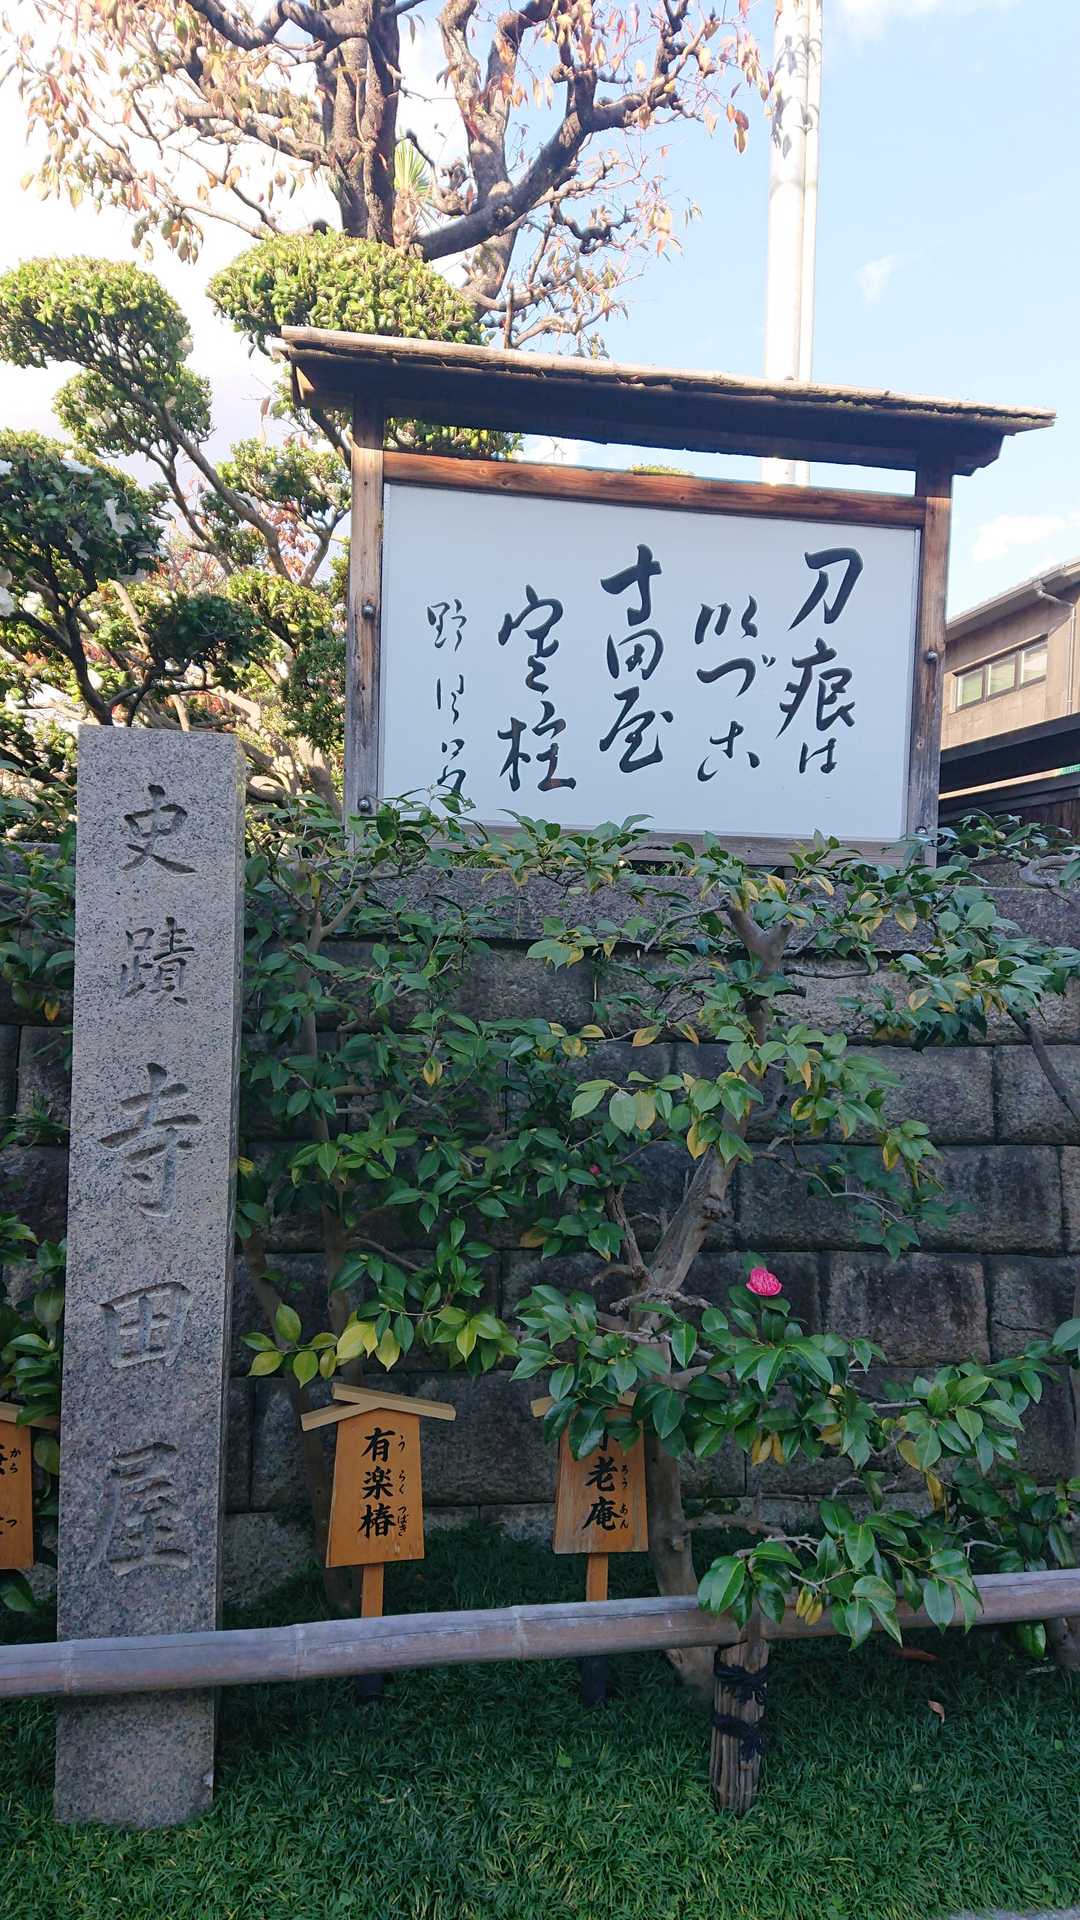 刀痕は
いづこ
寺田屋
寒椿
野風呂
史蹟寺田屋
有楽椿
うらくつばき
老庵
ろうあん
から